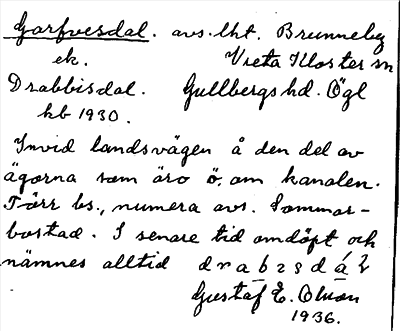 Garfvesdal. avs. lht. Brunneby
ek. Vreta Kloster sn
Drabbisdal. Gullbergs hd. Ögl
kb 1930.
Invid landsvägen å den del av
ägorna som äro ö. om kanalen.
Förr bs., numera avs. Sommar-
bostad. I senare tid omdöpt och
nämnes alltid drabzsdál
Gustaf E. Olsson
1936.